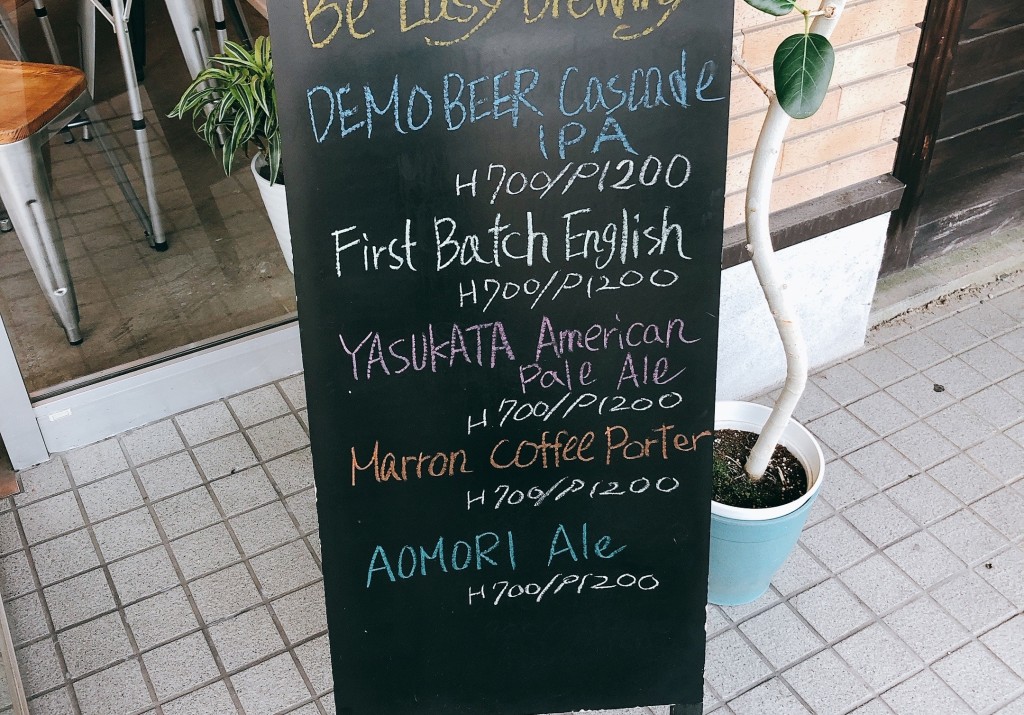 Be Easy Brewing
DEMO BEER Cascade
IPA
H700/P1200
First Batch English
H700/P1200
YASUKATA American
Pale Ale
H700/P1200
Marron Coffee Porter
H700/P1200
AOMORI Ale
H700/P1200